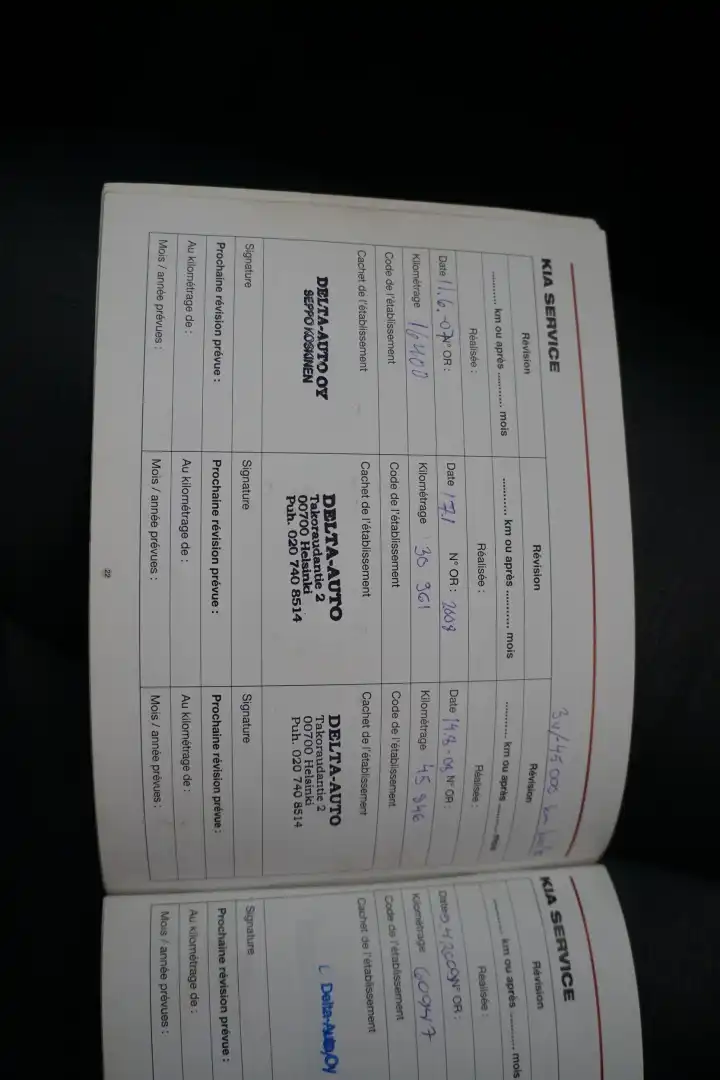 KIA SERVICE
Révision
........... km ou après ........... mois
Réalisée :
Date 11.6.-07 N° OR :
Kilométrage 16400
Code de l'établissement
Cachet de l'établissement
DELTA-AUTO OY
SEPPO KOSKINEN
Signature
Prochaine révision prévue :
Au kilométrage de :
Mois / année prévues :
Révision
........... km ou après ........... mois
Réalisée :
Date 17.1 N° OR : 2008
Kilométrage 30 961
Code de l'établissement
Cachet de l'établissement
DELTA-AUTO
Takoraudantie 2
00700 Helsinki
Puh. 020 740 8514
Signature
Prochaine révision prévue :
Au kilométrage de :
Mois / année prévues :
3v/45000 km
Révision
........... km ou après ........... mois
Réalisée :
Date 19.8-08 N° OR :
Kilométrage 45 846
Code de l'établissement
Cachet de l'établissement
DELTA-AUTO
Takoraudantie 2
00700 Helsinki
Puh. 020 740 8514
Signature
Prochaine révision prévue :
Au kilométrage de :
Mois / année prévues :
22
KIA SERVICE
Révision
........... km ou après ........... mois
Réalisée :
Date 4 2009 N° OR :
Kilométrage 60947
Code de l'établissement
Cachet de l'établissement
Delta-Auto Oy
Signature
Prochaine révision prévue :
Au kilométrage de :
Mois / année prévues :